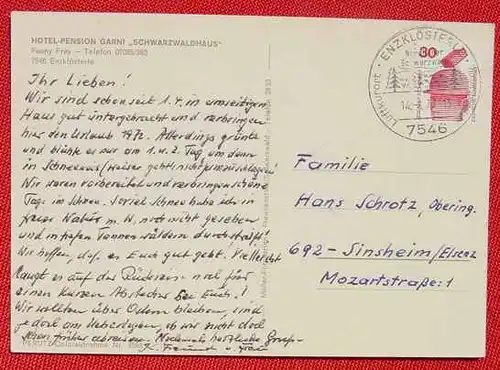 HOTEL-PENSION GARNI „SCHWARZWALDHAUS"
Fanny Frey — Telefon 07085/380
7546 Enzklösterle
Ihr Lieben!
Wir sind schon seit 1.4. in umseitigem
Haus gut untergebracht und verbringen
hier den Urlaub 1972. Allerdings grünte
und blühte es nur am 1. u. 2. Tag um dann
in Schnee
Wir waren vorbereitet und verbringen schöne
Tage im Schnee. Soviel Schnee habe ich in
freier Natur noch nicht gesehen
und in hohen Tannenwäldern durchstreift!
Wir hoffen, daß es Euch gut geht! Vielleicht
langt es auf der Rückreise noch für
einen kurzen Abstecher bei Euch!
Wir wollten über Ostern bleiben, sind
jedoch am Ueberlegen, ob wir nicht doch
schon früher abreisen! Nochmals herzliche Grüße
u. Frau
ENZKLÖSTERLE
Luftkurort
7546
30
Familie
Hans Schrotz, Obering.
692-Sinsheim/Elsenz
Mozartstraße:1